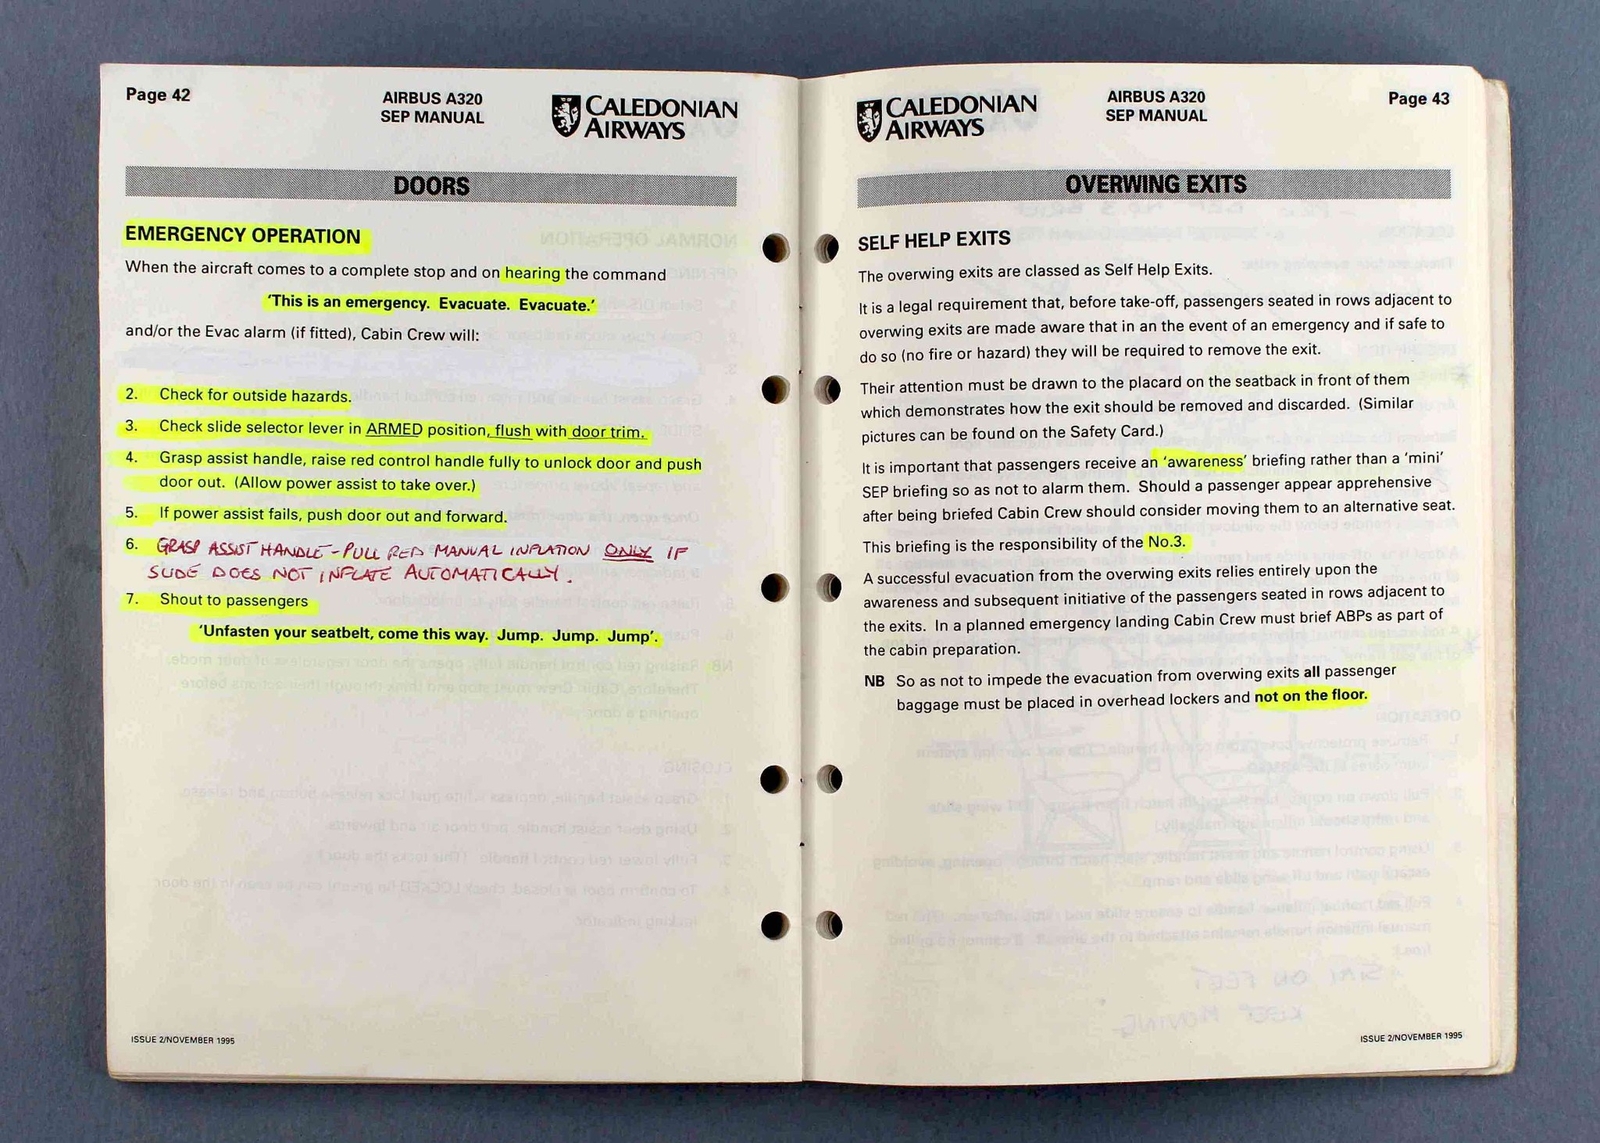 Page 42
AIRBUS A320
SEP MANUAL
CALEDONIAN
AIRWAYS
DOORS
EMERGENCY OPERATION
When the aircraft comes to a complete stop and on hearing the command
'This is an emergency. Evacuate. Evacuate.'
and/or the Evac alarm (if fitted), Cabin Crew will:
2. Check for outside hazards.
3. Check slide selector lever in ARMED position, flush with door trim.
4. Grasp assist handle, raise red control handle fully to unlock door and push
door out. (Allow power assist to take over.)
5. If power assist fails, push door out and forward.
6. GRASP ASSIST HANDLE - PULL RED MANUAL INFLATION ONLY IF
SLIDE DOES NOT INFLATE AUTOMATICALLY.
7. Shout to passengers
'Unfasten your seatbelt, come this way. Jump. Jump. Jump'.
ISSUE 2/NOVEMBER 1995
CALEDONIAN
AIRWAYS
AIRBUS A320
SEP MANUAL
Page 43
OVERWING EXITS
SELF HELP EXITS
The overwing exits are classed as Self Help Exits.
It is a legal requirement that, before take-off, passengers seated in rows adjacent to
overwing exits are made aware that in an the event of an emergency and if safe to
do so (no fire or hazard) they will be required to remove the exit.
Their attention must be drawn to the placard on the seatback in front of them
which demonstrates how the exit should be removed and discarded. (Similar
pictures can be found on the Safety Card.)
It is important that passengers receive an 'awareness' briefing rather than a 'mini'
SEP briefing so as not to alarm them. Should a passenger appear apprehensive
after being briefed Cabin Crew should consider moving them to an alternative seat.
This briefing is the responsibility of the No.3.
A successful evacuation from the overwing exits relies entirely upon the
awareness and subsequent initiative of the passengers seated in rows adjacent to
the exits. In a planned emergency landing Cabin Crew must brief ABPs as part of
the cabin preparation.
NB So as not to impede the evacuation from overwing exits all passenger
baggage must be placed in overhead lockers and not on the floor.
ISSUE 2/NOVEMBER 1995